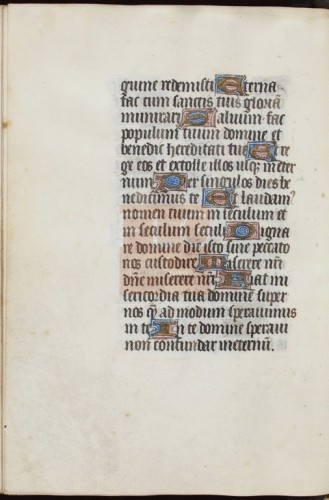 guine redemisti Eterna
fac cum sanctis tuis gloria
munerari Saluum fac
populum tuum domine et
benedic hereditati tue Et re
ge eos et extolle illos usq; in eter
num Per singulos dies be
nedicimus te Et laudam
nomen tuum in seculum et
in seculum seculi Digna
re domine die isto sine peccato
nos custodire Miserere nri
dne miserere nri Fiat mi
sericordia tua domine super
nos q ad modum sperauimus
in te In te domine speraui
non confundar in eternu.